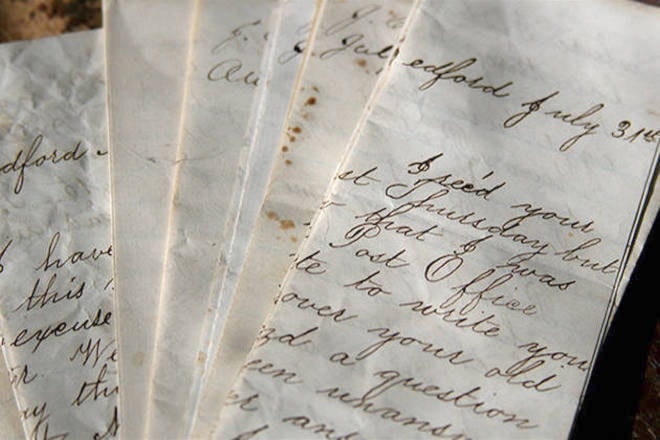 dford
I have
this
excuse
We
thi
J.
Au
J.
Jul
edford July 31st
I rec'd your
st Thursday but
that I was
Post Office
te to write you
over your old
d a question
een unans